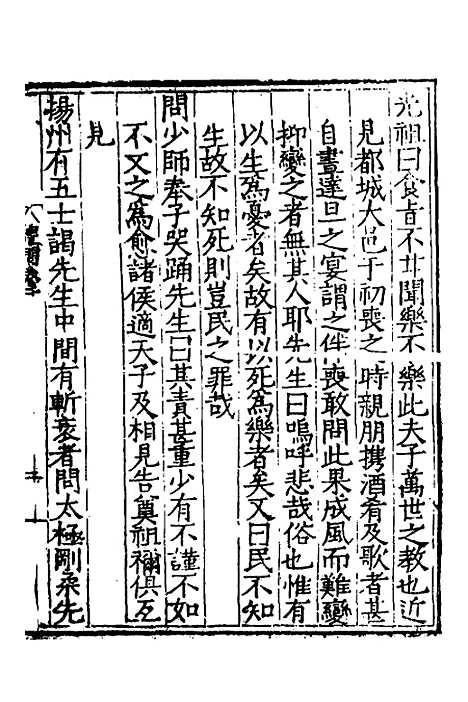 光祖曰食旨不甘聞樂不樂此夫子萬世之教也近
見都城大邑于初喪之時親朋携酒肴及歌者甚
自晝達旦之宴謂之伴喪敢問此果成風而難變
抑變之者無其人耶先生曰嗚呼悲哉俗也惟有
以生爲憂者矣故有以死爲樂者矣又曰民不知
生故不知死則豈民之罪哉
問少師奉子哭踊先生曰其責甚重少有不謹不如
不又之爲愈諸侯適天子及相見告奠祖禰俱互
見
揚州有五士謁先生中間有斬衰者問太極剛柔先